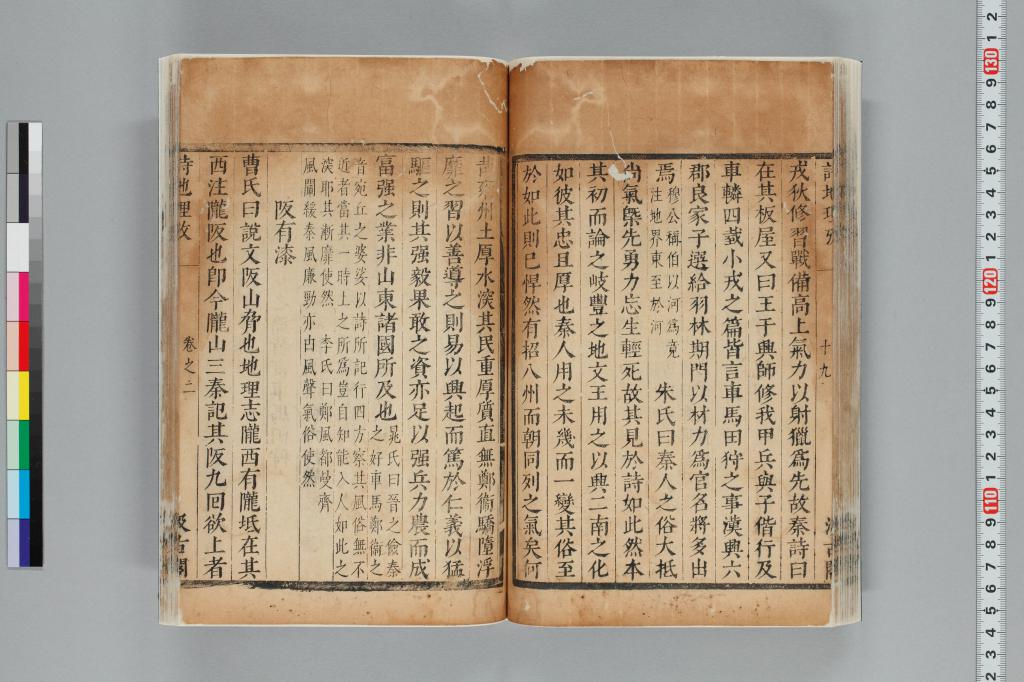 戎狄修習戰備高上氣力以射獵爲先故秦詩曰
在其板屋又曰王于興師修我甲兵與子偕行及
車轔四臷小戎之篇皆言車馬田狩之事漢興六
郡良家子選給羽林期門以材力爲官名將多出
焉
穆公稱伯以河爲竟
注地界東至於河
朱氏曰秦人之俗大抵
尚氣槩先勇力忘生輕死故其見於詩如此然本
其初而論之岐豐之地文王用之以興二南之化
如彼其忠且厚也秦人用之未幾而一變其俗至
於如此則已悍然有招八州而朝同列之氣矣何
哉雍州土厚水深其民重厚質直無鄭衞驕隋浮
靡之習以善導之則易以興起而篤於仁義以猛
驅之則其强毅果敢之資亦足以强兵力農而成
富强之業非山東諸國所及也
晁氏曰晉之儉秦
之好車馬鄭衞之
音宛丘之婆娑以詩所記行四方察其風俗無不
近者當其一時上之所爲豈自知能入人如此之
深耶其漸靡使然 李氏曰鄭風都曼齊
風闡緩秦風廉勁亦古風聲氣俗使然
阪有漆
曹氏曰說文阪山脅也地理志隴西有隴坻在其
西注隴阪也卽今隴山三秦記其阪九囘欲上者
詩地理攷
卷之二
汲古閣
十九